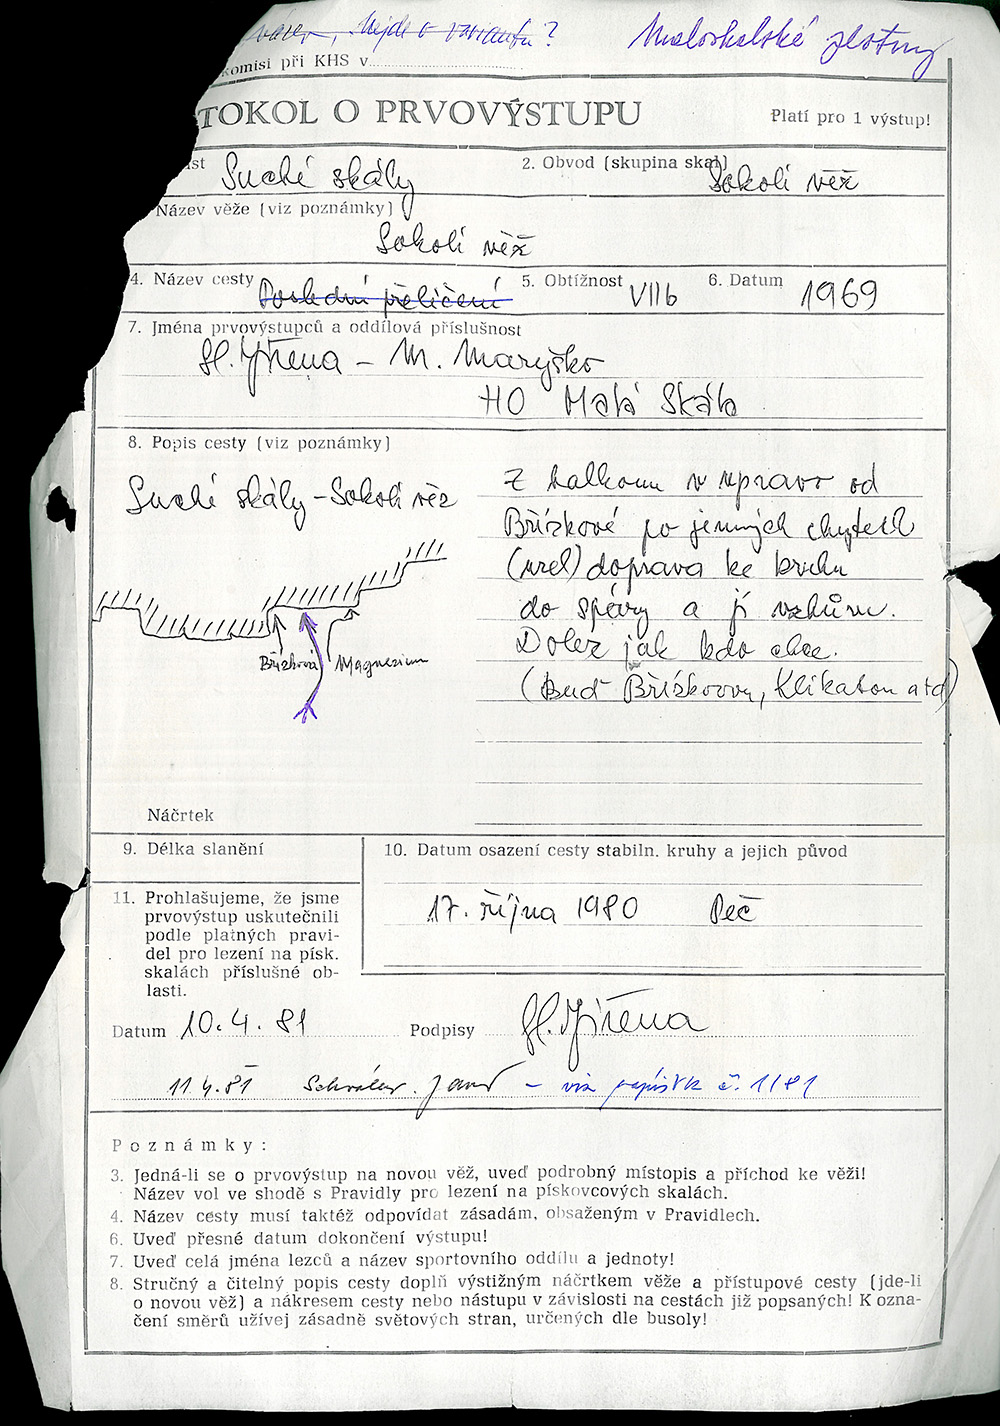 Nejde o variantu? Maloskalské plotny
komisi při KHS v
TOKOL O PRVOVÝSTUPU Platí pro 1 výstup!
Suché skály 2. Obvod (skupina skal) Sokolí věž
Název věže (viz poznámky)
Sokolí věž
4. Název cesty Poslední přelíčení 5. Obtížnost VIIb 6. Datum 1969
7. Jména prvovýstupců a oddílová příslušnost
Jiřena - M. Maryško
HO Malá Skála
8. Popis cesty (viz poznámky)
Suché skály - Sokolí věž
Břízková Magnesium
Z balkonu vpravo od
Břízkové po jemných chytech
(vzel) doprava ke kruhu
do spáry a jí vzhůru.
Dolez jak kdo chce.
(Buď Břízkovou, Klikatou atd)
Náčrtek
9. Délka slanění
10. Datum osazení cesty stabiln. kruhy a jejich původ
17. října 1980 Peč
11. Prohlašujeme, že jsme
prvovýstup uskutečnili
podle platných pravi-
del pro lezení na písk.
skalách příslušné ob-
lasti.
Datum 10.4.81 Podpisy Jiřena
11.4.81 - viz č. 1/81
Poznámky:
3. Jedná-li se o prvovýstup na novou věž, uveď podrobný místopis a příchod ke věži!
Název vol ve shodě s Pravidly pro lezení na pískovcových skalách.
4. Název cesty musí taktéž odpovídat zásadám, obsaženým v Pravidlech.
6. Uveď přesné datum dokončení výstupu!
7. Uveď celá jména lezců a název sportovního oddílu a jednoty!
8. Stručný a čitelný popis cesty doplň výstižným náčrtkem věže a přístupové cesty (jde-li
o novou věž) a nákresem cesty nebo nástupu v závislosti na cestách již popsaných! K ozna-
čení směrů užívej zásadně světových stran, určených dle busoly!